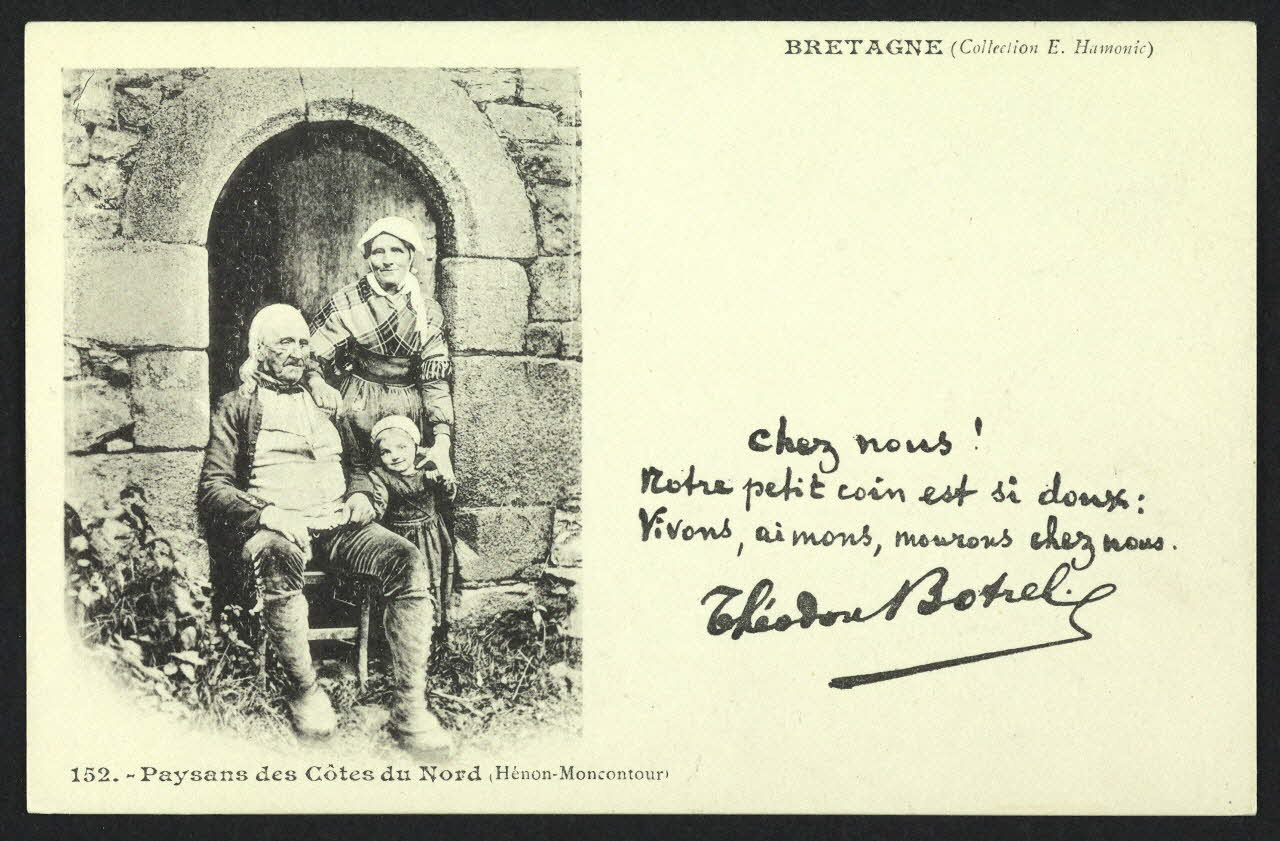 BRETAGNE (Collection E. Hamonic)
chez nous !
Notre petit coin est si doux :
Vivons, aimons, mourons chez nous.
Théodore Botrel.
152. - Paysans des Côtes du Nord (Hénon-Moncontour)